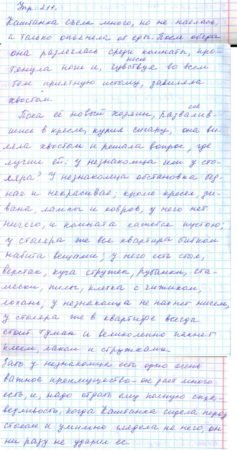 Упр. 211.
Каштанка съела много, но не наелась,
а только опьянела от еды. После обеда
она разлеглась среди комнаты, про-
тянула ноги и, чувствуя во всем
теле приятную истому, завиляла
хвостом.
Пока её новый хозяин, развалив-
шись в кресле, курил сигару, она ви-
ляла хвостом и решала вопрос, где
лучше ей: у незнакомца или у сто-
ляра? У незнакомца обстановка бед-
ная и некрасивая, кроме кресел, ди-
вана, лампы и ковров, у него нет
ничего, и комната кажется пустою;
у столяра же вся квартира битком
набита вещами; у него есть стол,
верстак, куча стружек, рубанки, ста-
мески, пилы, клетка с чижиком,
лохань, у незнакомца не пахнет ничем,
у столяра же в квартире всегда
стоит туман и великолепно пахнет
клеем, лаком и стружками.
Зато у незнакомца есть одно очень
важное преимущество - он даёт много
есть, и, надо отдать ему полную спра-
ведливость, когда Каштанка сидела перед
столом и умильно глядела на него, он
ни разу не ударил её